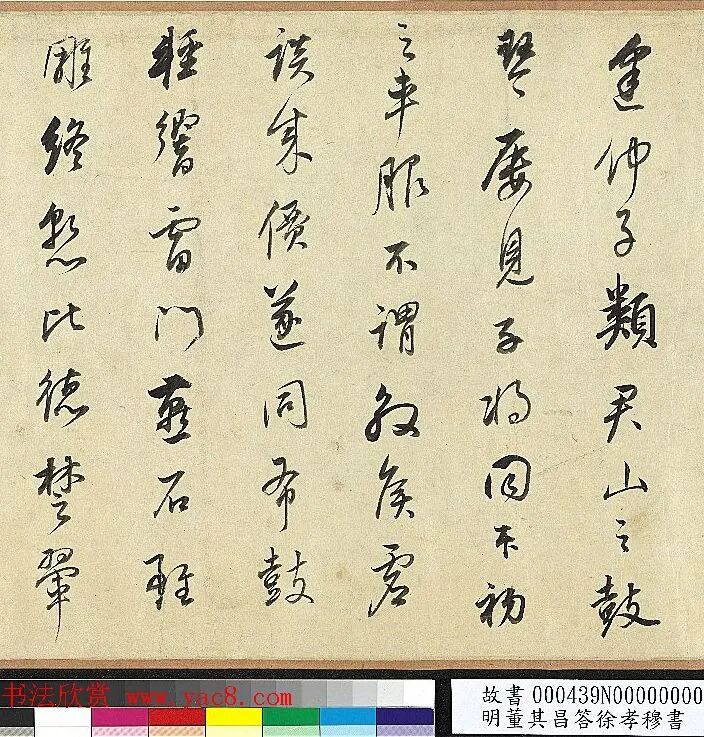 仲子類君山之鼓
琴屢見子將同本初
之車服不謂侯虛
談成價遂同布鼓
輕響雷門燕石難
雕終慙比德楚翬
书法欣赏 www.yac8.com
故書 000439N00000000
明董其昌答徐孝穆書